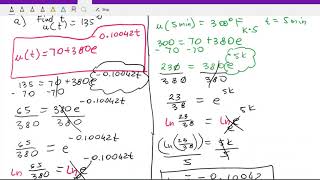 a) Find t,
u(t) = 135°
u(t) = 70+380e^-0.10042t
135 = 70+380e^-0.10042t
-70 -70
65/380 = 380e^-0.10042t/380
65/380 = e^-0.10042t
ln 65/380 = ln e^-0.10042t
u(5min) = 300°F t = 5min
300 = 70+380e^k·5
-70 -70
230/380 = 380e^5k/380
23/38 = e^5k
ln 23/38 = ln e^5k
ln(23/38)/5 = 5k/5